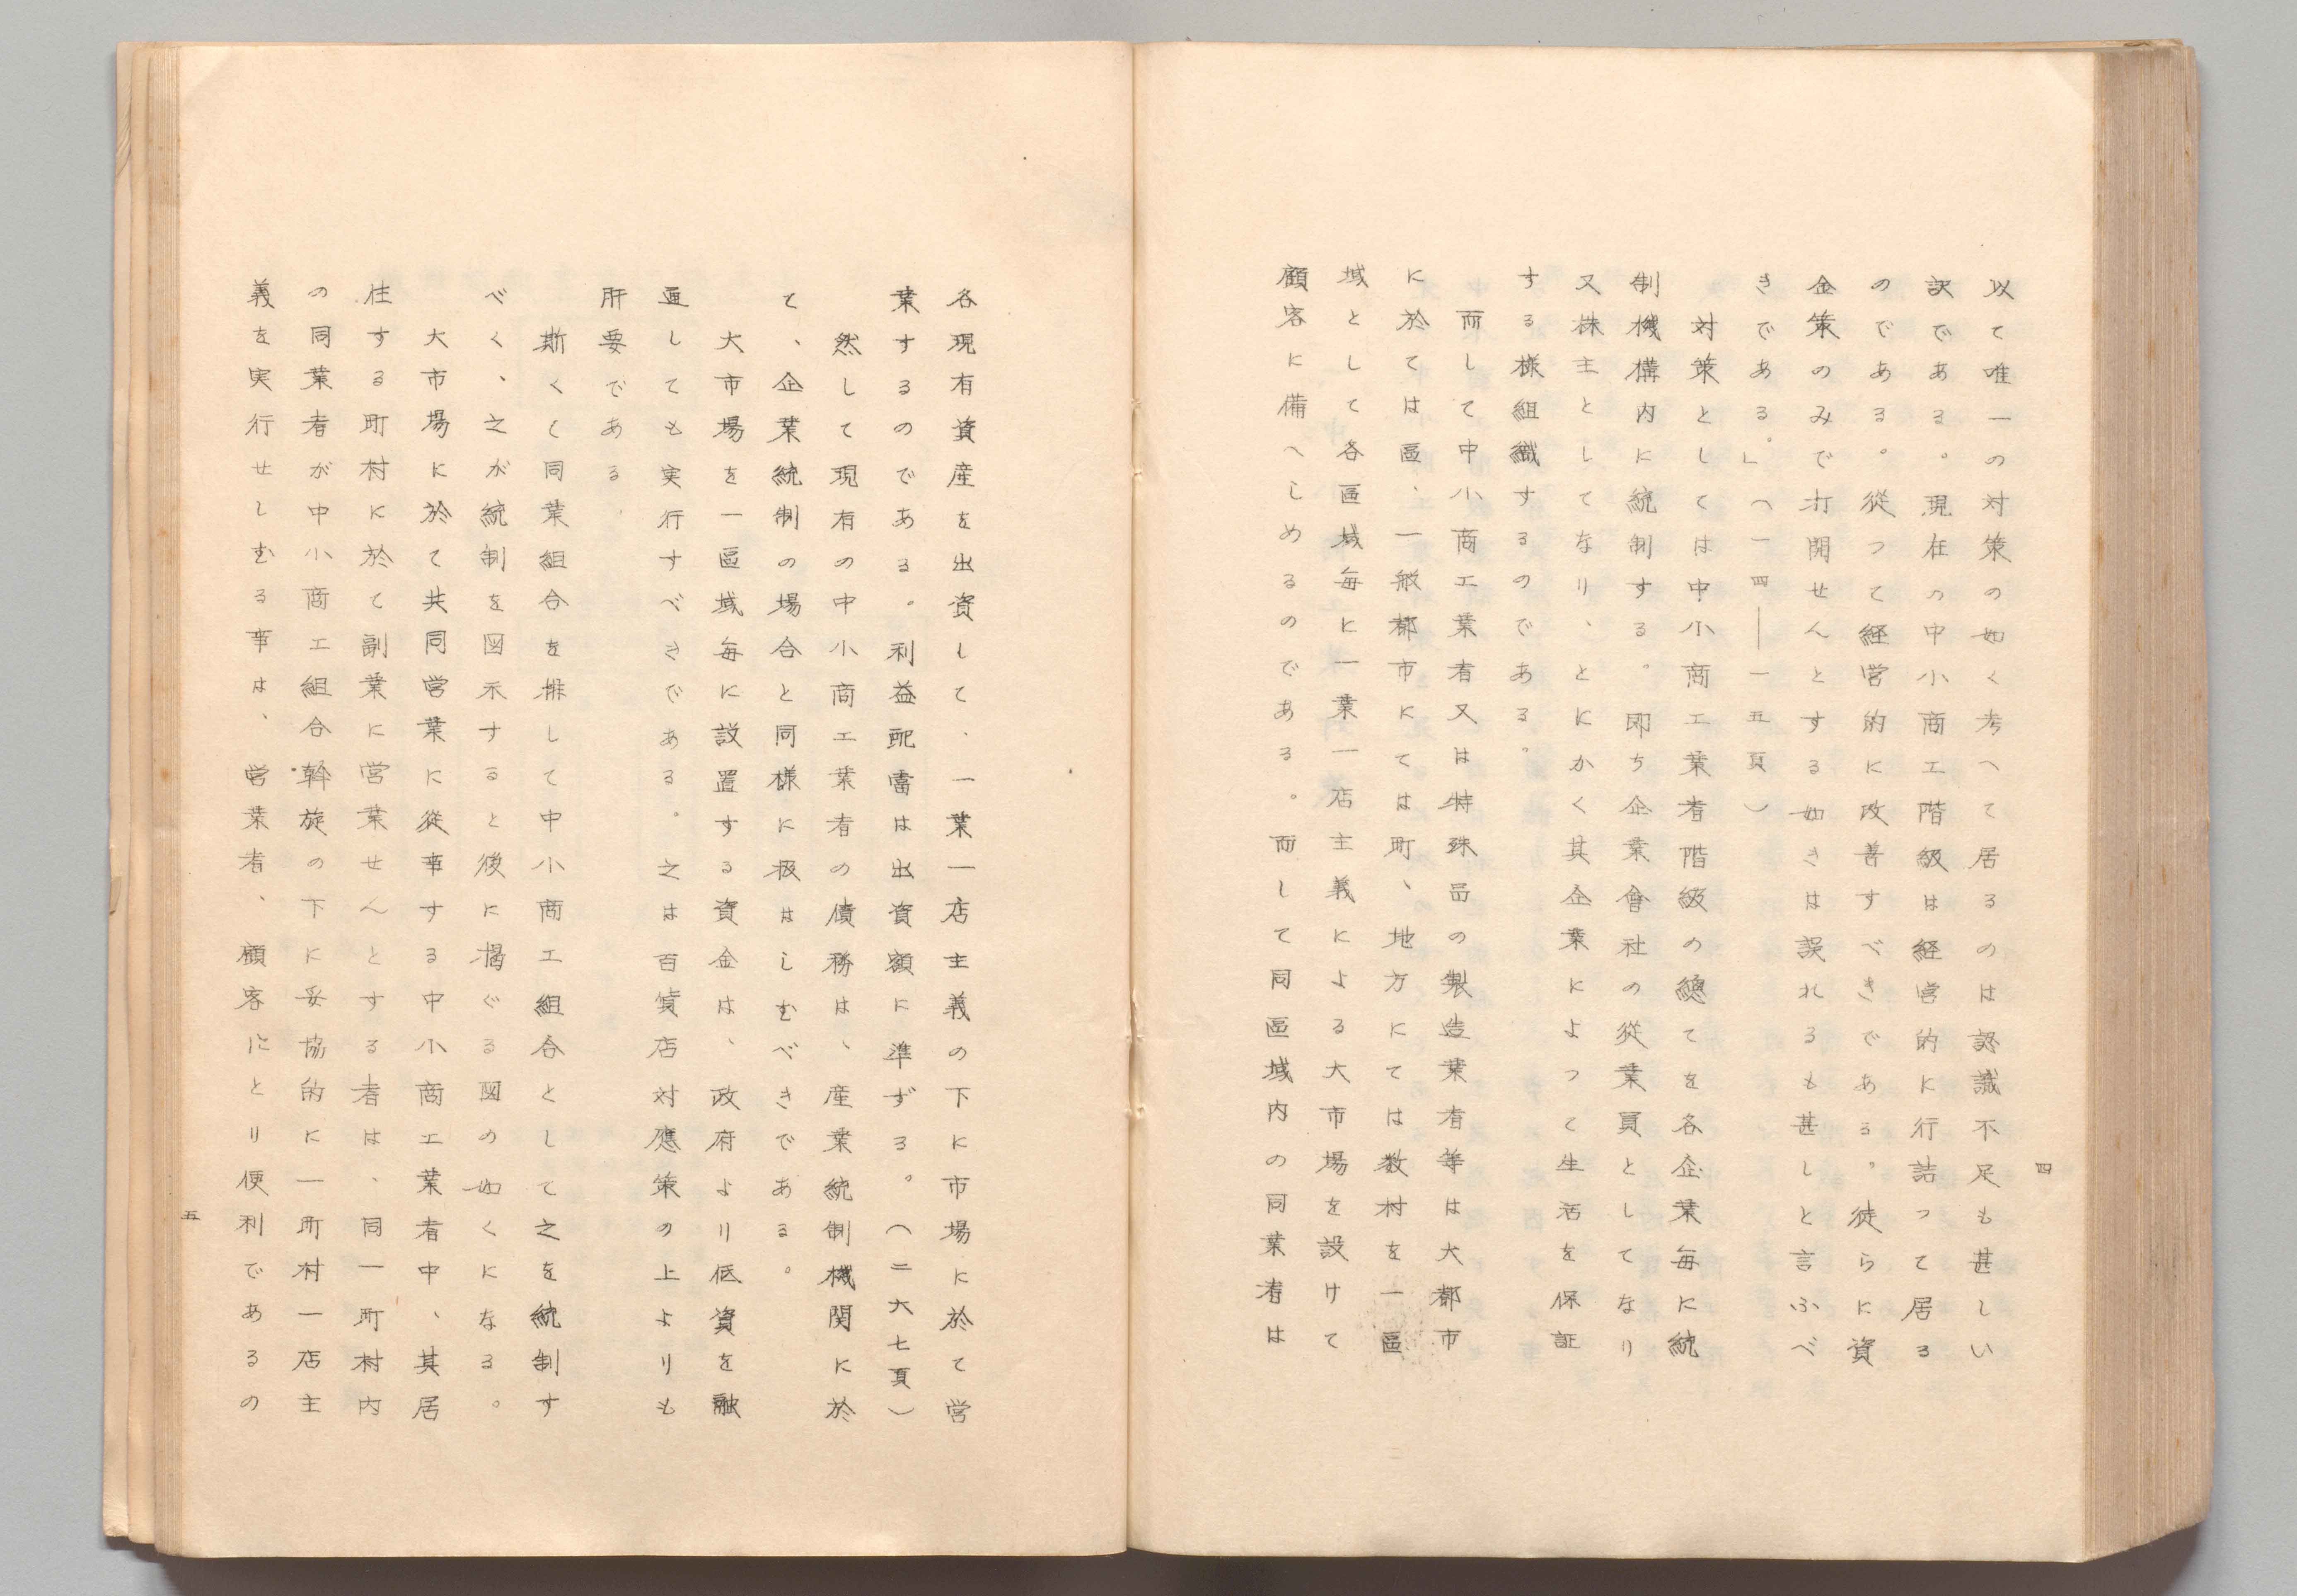 以て唯一の対策の如く考へて居るのは認識不足も甚しい
訳である。現在の中小商工階級は経営的に行詰つて居る
のである。從つて経営的に改善すべきである。徒らに資
金策のみで打開せんとする如きは誤れるも甚しと言ふべ
きである。」（一四―一五頁）
対策としては中小商工業者階級の總てを各企業毎に統
制機構内に統制する。即ち企業會社の從業員としてなり
又株主としてなり、とにかく其企業によつて生活を保証
する様組織するのである。
而して中小商工業者又は特殊品の製造業者等は大都市
に於ては區、一般都市にては町、地方にては数村を一區
域として各區域毎に一業一店主義による大市場を設けて
顧客に備へしめるのである。而して同區域内の同業者は
四
各現有資産を出資して、一業一店主義の下に市場に於て営
業するのである。利益配當は出資額に準ずる。（二六七頁）
然して現有の中小商工業者の債務は、産業統制機関に於
て、企業統制の場合と同様に扱はしむべきである。
大市場を一區域毎に設置する資金は、政府より低資を融
通しても実行すべきである。之は百貨店対應策の上よりも
肝要である。
斯くて同業組合を排して中小商工組合として之を統制す
べく、之が統制を図示すると後に掲ぐる図の如くになる。
大市場に於て共同営業に從事する中小商工業者中、其居
住する町村に於て副業に営業せんとする者は、同一町村内
の同業者が中小商工組合幹旋の下に妥協的に一町村一店主
義を実行せしむる事は、営業者、顧客にとり便利であるの
五